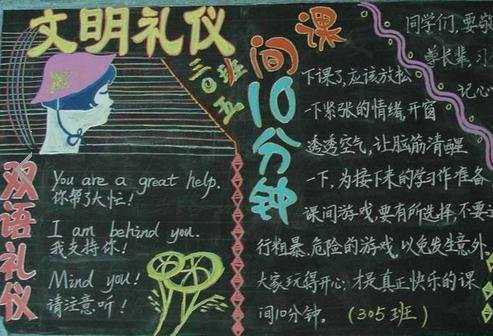 文明礼仪
三〇五班
双语礼仪
You are a great help.
你帮了大忙!
I am behind you.
我支持你!
Mind you!
请注意听!
课间10分钟
下课了,应该放松
一下紧张的情绪,开窗
透透空气,让脑筋清醒
一下,为接下来的学习作准备
课间游戏,要有所选择,不要
行粗暴、危险的游戏,以免发生意外
大家玩得开心,才是真正快乐的课
间10分钟。(305班)
同学们,要
学长辈,习
记心